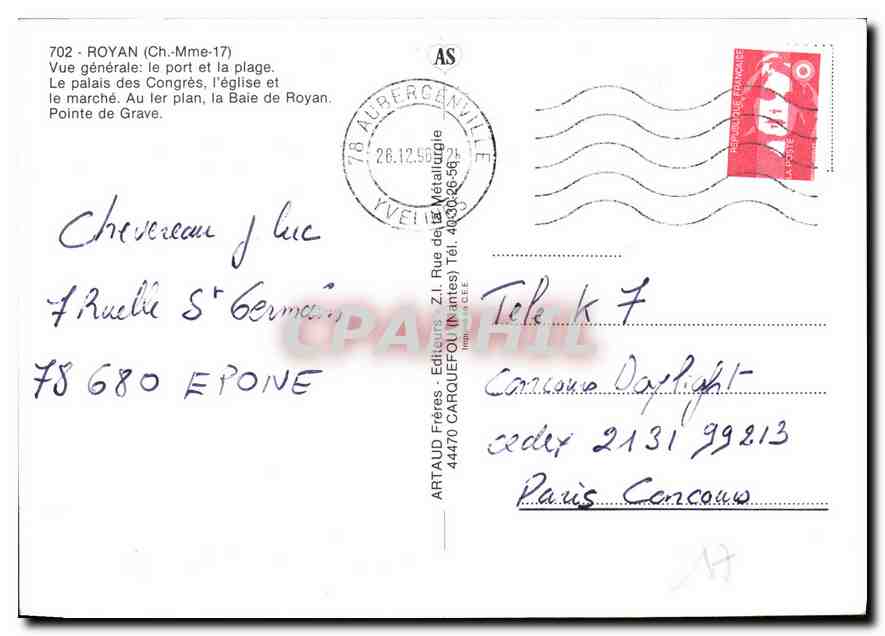 702 - ROYAN (Ch.-Mme-17)
Vue générale: le port et la plage.
Le palais des Congrès, l'église et
le marché. Au 1er plan, la Baie de Royan.
Pointe de Grave.
AS
78 AUBERGENVILLE
26.12.96
YVELINES
REPUBLIQUE FRANÇAISE
LA POSTE
Chevereau J luc
7 Ruelle St Germain
78 680 EPONE
ARTAUD Frères - Editeurs - Z.I. Rue de la Métallurgie
44470 CARQUEFOU (Nantes) Tél. 40-30-26-56
C.E.E.
Tele k 7
Concours Daylight
cedex 2131 99213
Paris Concours
CPAPHIL
17